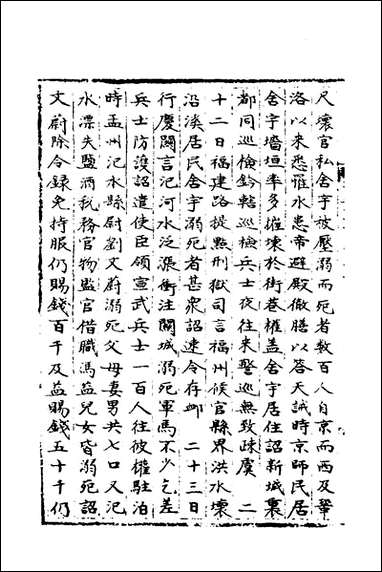 尺壞官私舍宇被壓溺而死者数百人自京而西及鞏
洛以来悉罹水患帝避殿徹膳以答天誡時京師民居
舍宇墻垣率多摧壊於街巷權盖舍宇居住詔新城裏
都同巡檢鈐轄巡檢兵士夜往来警巡無致疎虞　二
十二日福建路提㸃刑獄司言福州候官縣界洪水壞
沿溪居民舍宇溺死者甚衆詔速令存䘏　二十三日
行慶關言汜河水泛漲衝注關城溺死軍馬不少乞差
兵士防渡詔遣使臣領宣武兵士一百人往彼權駐泊
時孟州汜水縣尉劉文蔚溺死父母妻男共七口又汜
水漂失鹽酒税務官物監官借職馮益兒女皆溺死詔
文蔚除令録免持服仍賜錢百千及益賜錢五十千仍